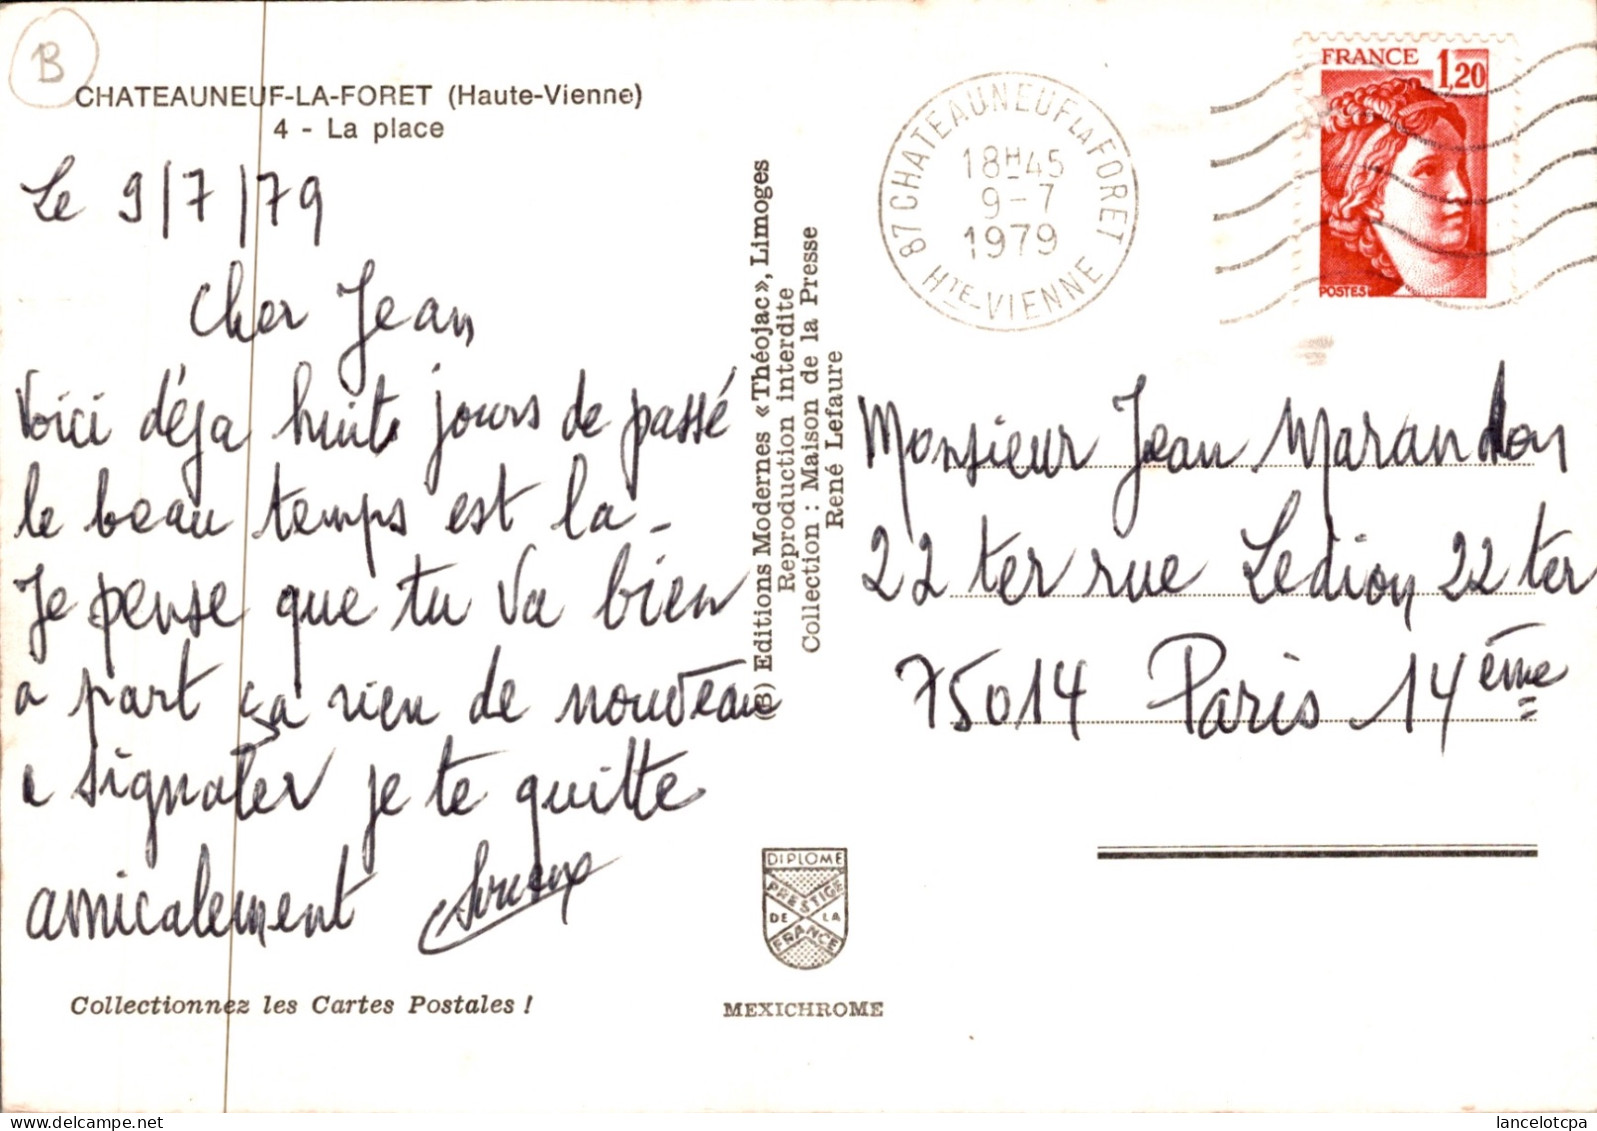 B
CHATEAUNEUF-LA-FORET (Haute-Vienne)
4 - La place
Le 9/7/79
Cher Jean,
Voici déja huit jours de passé
le beau temps est la -
Je pense que tu va bien
a part ça rien de nouveau
a signaler je te quitte
amicalement
Collectionnez les Cartes Postales !
Editions Modernes «Théojac», Limoges
Reproduction interdite
Collection : Maison de la Presse
René Lefaure
DIPLOME
PRESTIGE
DE LA
FRANCE
MEXICHROME
87 CHATEAUNEUF LA FORET
18H45
9-7
1979
HTE-VIENNE
FRANCE 1,20
POSTES
Monsieur Jean Marandon
22 ter rue Ledion 22 ter
75014 Paris 14ème
lancelotcpa